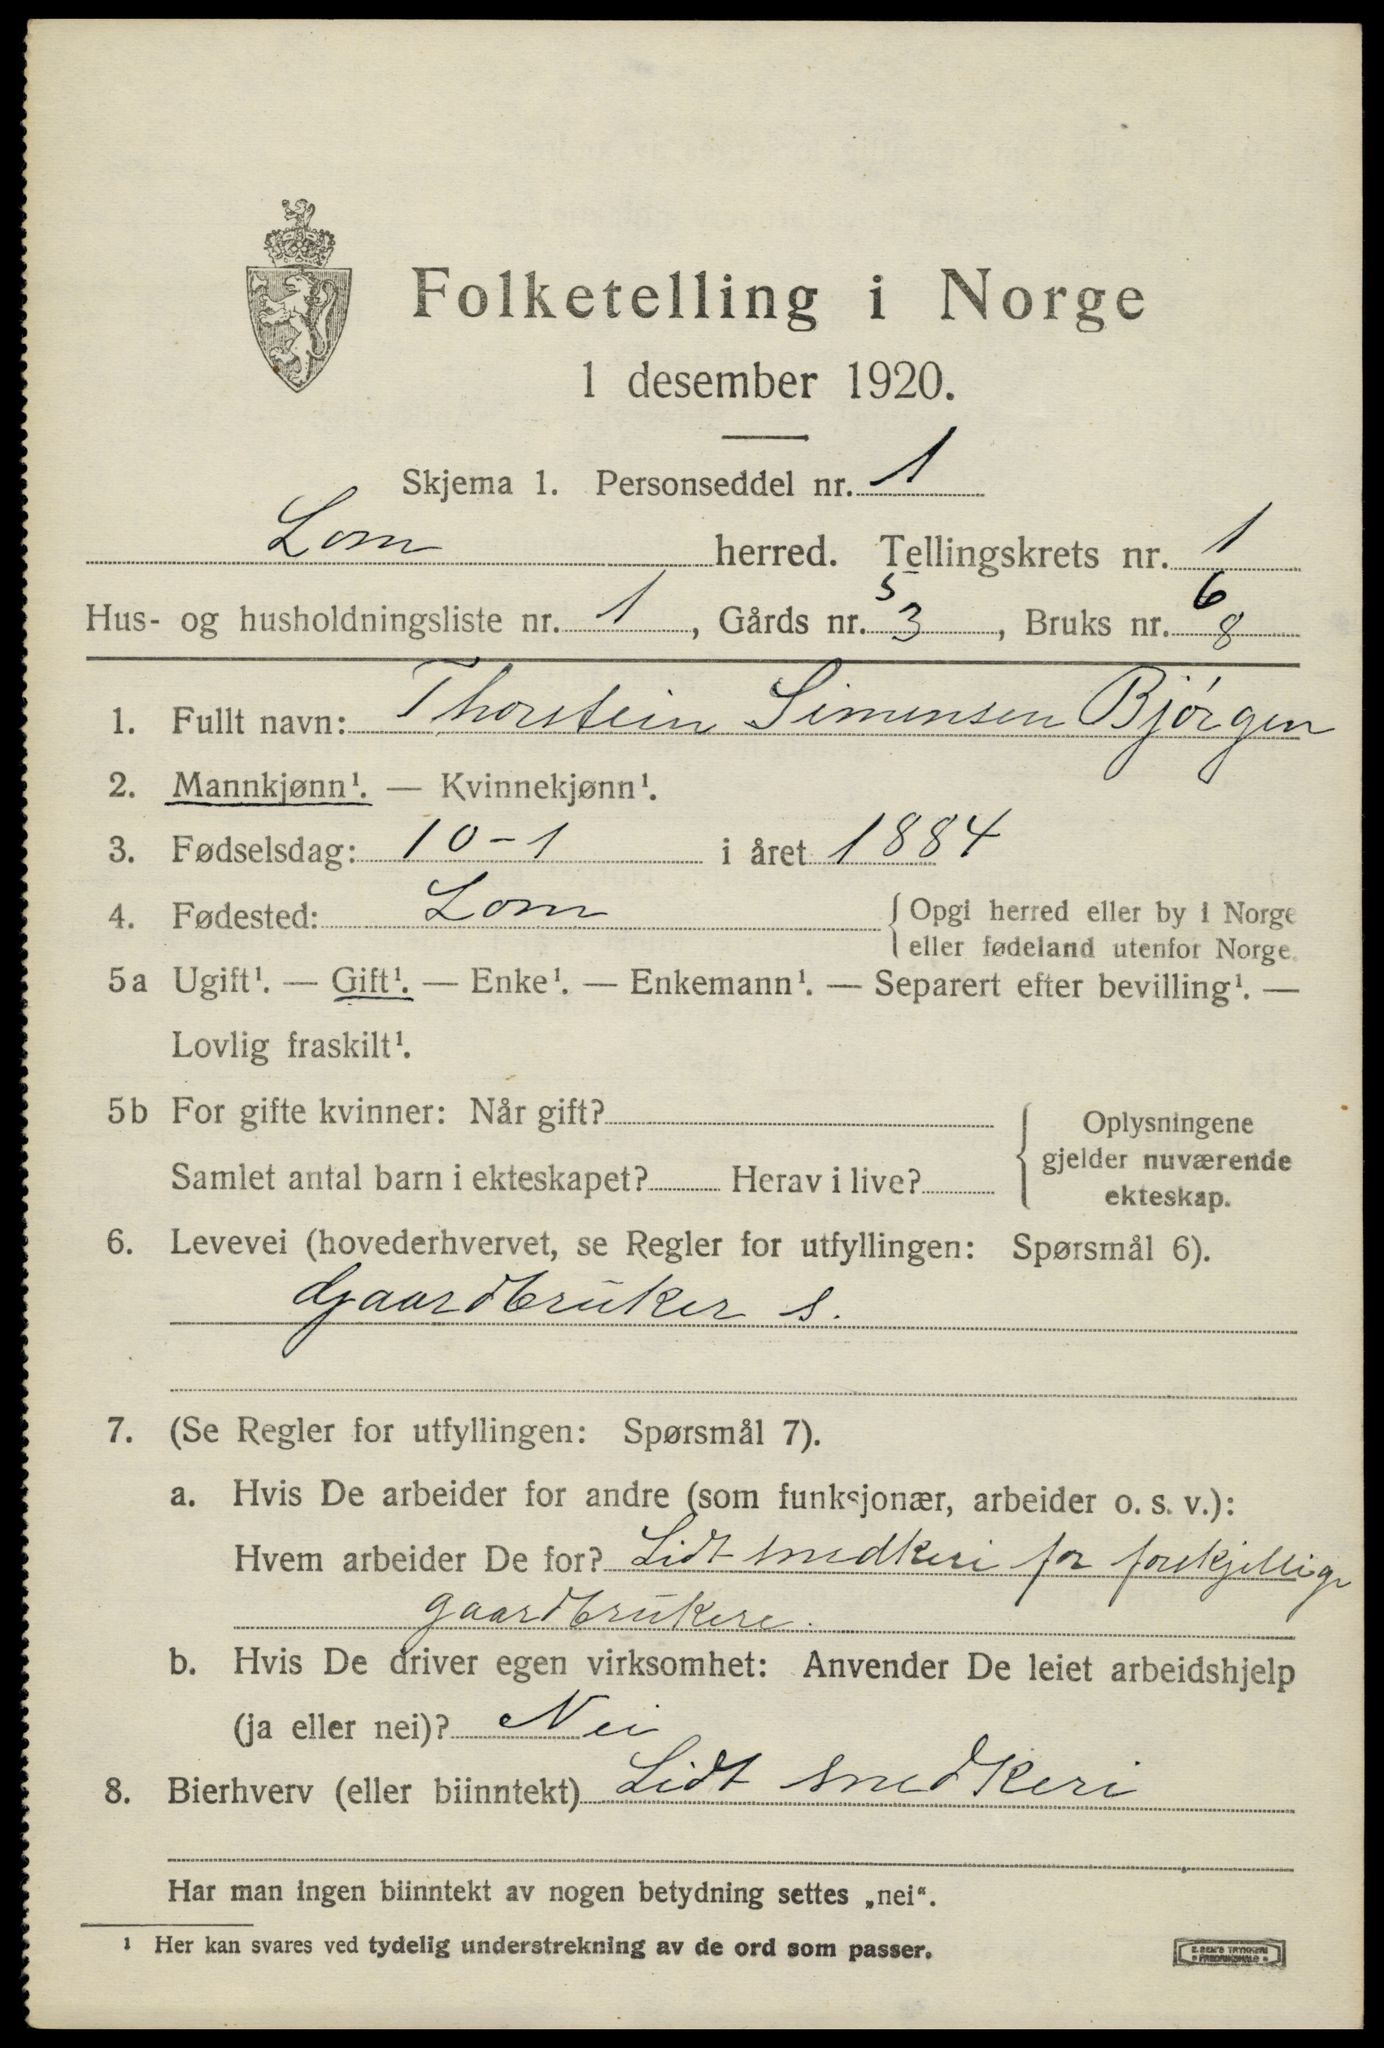 Folketelling i Norge
1 desember 1920.
Skjema 1. Personseddel nr. 1
Lom herred. Tellingskrets nr. 1
5 6
Hus- og husholdningsliste nr. 1, Gårds nr. 3, Bruks nr. 8
1. Fullt navn: Thorstein Simensen Bjørgen
2. Mannkjønn¹. — Kvinnekjønn¹.
3. Fødselsdag: 10-1 i året 1884
4. Fødested: Lom { Opgi herred eller by i Norge
eller fødeland utenfor Norge.
5a Ugift¹. — Gift¹. — Enke¹. — Enkemann¹. — Separert efter bevilling¹. —
Lovlig fraskilt¹.
5b For gifte kvinner: Når gift? { Oplysningene
gjelder nuværende
Samlet antal barn i ekteskapet? Herav i live?
ekteskap.
6. Levevei (hovederhvervet, se Regler for utfyllingen: Spørsmål 6).
Gaardbruker s.
7. (Se Regler for utfyllingen: Spørsmål 7).
a. Hvis De arbeider for andre (som funksjonær, arbeider o. s. v.):
Hvem arbeider De for? Lidt snedkeri for forskjellige
gaardbrukere.
b. Hvis De driver egen virksomhet: Anvender De leiet arbeidshjelp
(ja eller nei)? Nei
8. Bierhverv (eller biinntekt) Lidt snedkeri
Har man ingen biinntekt av nogen betydning settes „nei“.
¹ Her kan svares ved tydelig understrekning av de ord som passer.